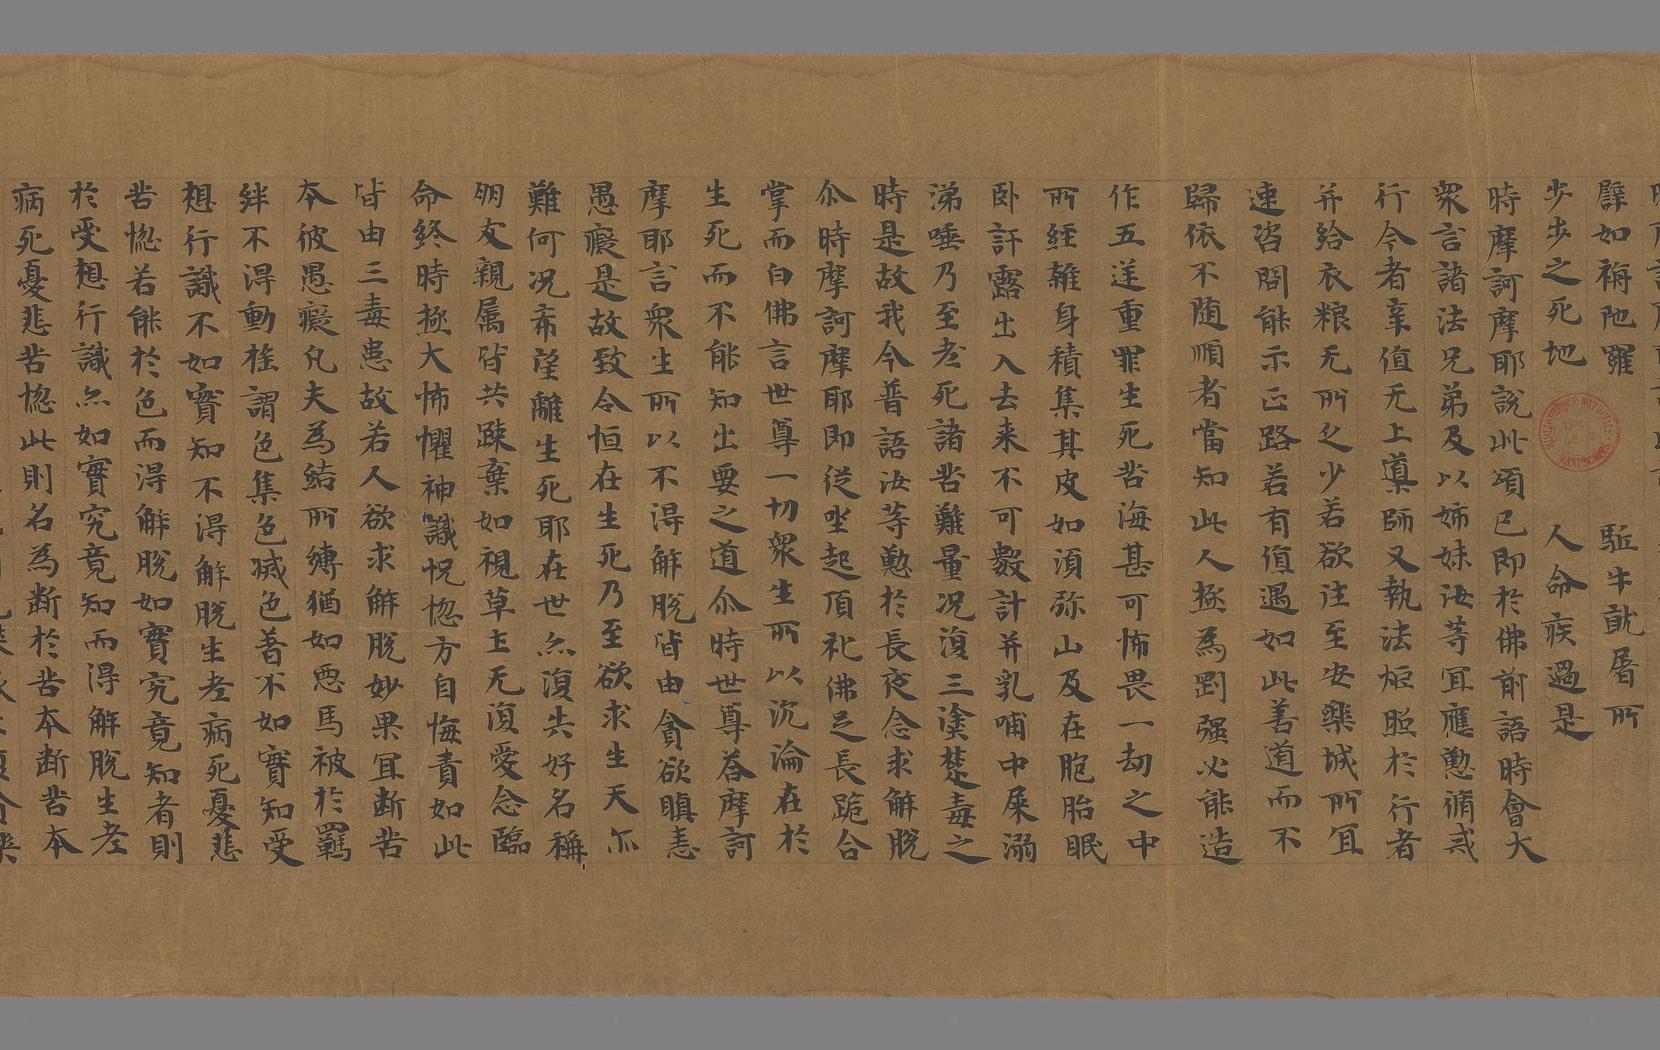 譬如栴陁羅 駈牛就屠所
步步之死地 人命疾過是
時摩訶摩耶說此頌已即於佛前語時會大
衆言諸法兄弟及以姊妹汝等冝應懃脩戒
行今者幸值无上導師又執法炬照於行者
并給衣粮无所乏少若欲往至安樂城所冝
速咨問能示正路若有值遇如此善道而不
歸依不随順者當知此人極為剛强必能造
作五逆重罪生死苦海甚可怖畏一劫之中
所經雜身積集其皮如湏弥山及在胞胎眠
卧訐露出入去来不可數計并乳哺中屎溺
涕唾乃至老死諸苦難量况復三塗楚毒之
時是故我今普語汝等懃於長夜念求解脫
尒時摩訶摩耶即從坐起頂礼佛足長跪合
掌而白佛言世尊一切衆生所以沉淪在於
生死而不能知出要之道尒時世尊荅摩訶
摩耶言衆生所以不得解脫皆由貪欲瞋恚
愚癡是故致令恒在生死乃至欲求生天尒
難何况希望離生死耶在世亦復失好名稱
朋友親属皆共踈棄如視草土无復愛念臨
命終時極大怖懼神識怳惚方自悔責如此
皆由三毒患故若人欲求解脫妙果冝断苦
本彼愚癡凡夫為結所縛猶如悪馬被於羈
絆不得動揺謂色集色滅色著不如實知受
想行識不如實知不得解脫生老病死憂悲
苦惚若能於色而得解脫如實究竟知者則
於受想行識亦如實究竟知而得解脫生老
病死憂悲苦惚此則名為断於苦本断苦本